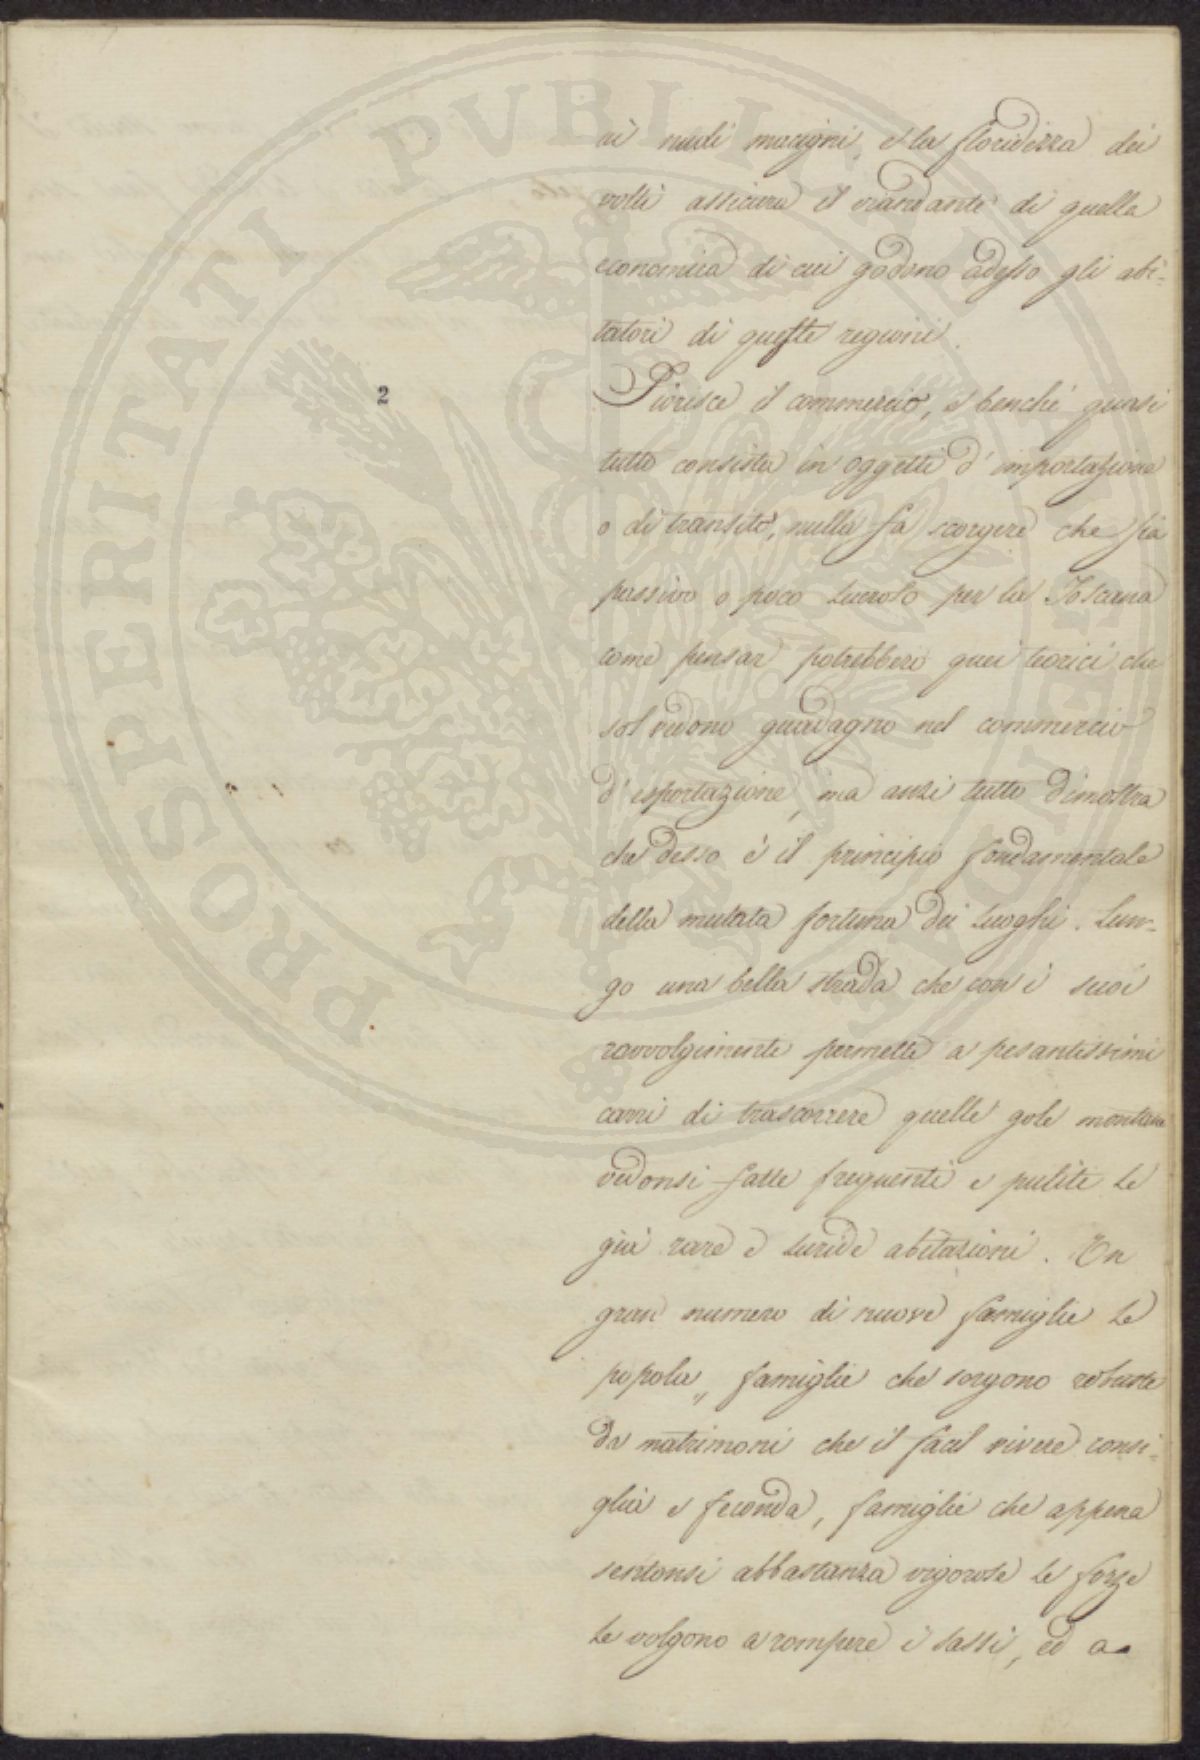 ni nudi macigni, e la floridezza dei
volti assicura il viandante di quella
economica di cui godono adesso gli abi-
tatori di queste regioni.
Fiorisce il commercio, e benchè quasi
tutto consista in oggetti d'importazione
o di transito, nulla fa scorgere che sia
passivo o poco lucroso per la Toscana
come pensar potrebbero quei teorici che
sol vedono guadagno nel commercio
d'esportazione, ma anzi tutto dimostra
che desso è il principio fondamentale
della mutata fortuna dei luoghi. Lun-
go una bella strada che con i suoi
ravvolgimenti permette a pesantissimi
carri di trascorrere quelle gole montane
vedonsi fatte frequenti e pulite le
già rare e luride abitazioni. Un
gran numero di nuove famiglie le
popola, famiglie che sorgono robuste
da matrimoni che il facil vivere consi-
glia e feconda, famiglie che appena
sentonsi abbastanza vigorose le forze
le volgono a rompere i sassi, ed a
2
PROSPERITATI PUBLICAE